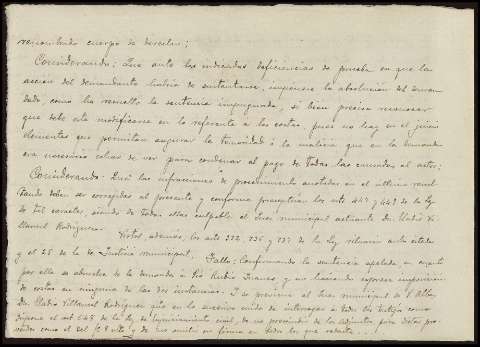 renombrado cuerpo de derecho;
Considerando: Que ante las indicadas deficiencias de prueba en que la
acción del demandante habría de sustentarse, impónese la absolución del deman
dado, como ha resuelto la sentencia impugnada, si bien precisa reconocer
que debe esta modificarse en lo referente a las costas, pues no hay en el juicio
elementos que permitan asegurar la temeridad o la malicia que en la demanda
era necesario echar de ver para condenar al pago de todas las causadas al actor;
Considerando: Que las infracciones de procedimiento anotadas en el último resul
tando deben ser corregidas al presente y conforme preceptúan los arts 447 y 449 de la ley
de tal carácter, siendo de todas ellas culpable el Juez municipal actuante Dn. Eladio Vi
llamiel Rodríguez. Vistos, además, los arts 372, 736 y 737 de la ley rituaria antes citada
y el 25 de la de Justicia municipal, Fallo: Confirmando la sentencia apelada, en cuanto
por ella se absuelve de la demanda a Pío Rubio Juanes, y no haciendo expresa imposición
de costas en ninguna de las dos instancias. Y se previene al Juez municipal de
Dn. Eladio Villamiel Rodríguez que en lo sucesivo cuide de interrogar a todos los testigos como
dispone el art 648 de la ley de Enjuiciamiento civil, de no prescindir de los adjuntos para
y de no omitir su firma en todo lo que redacte